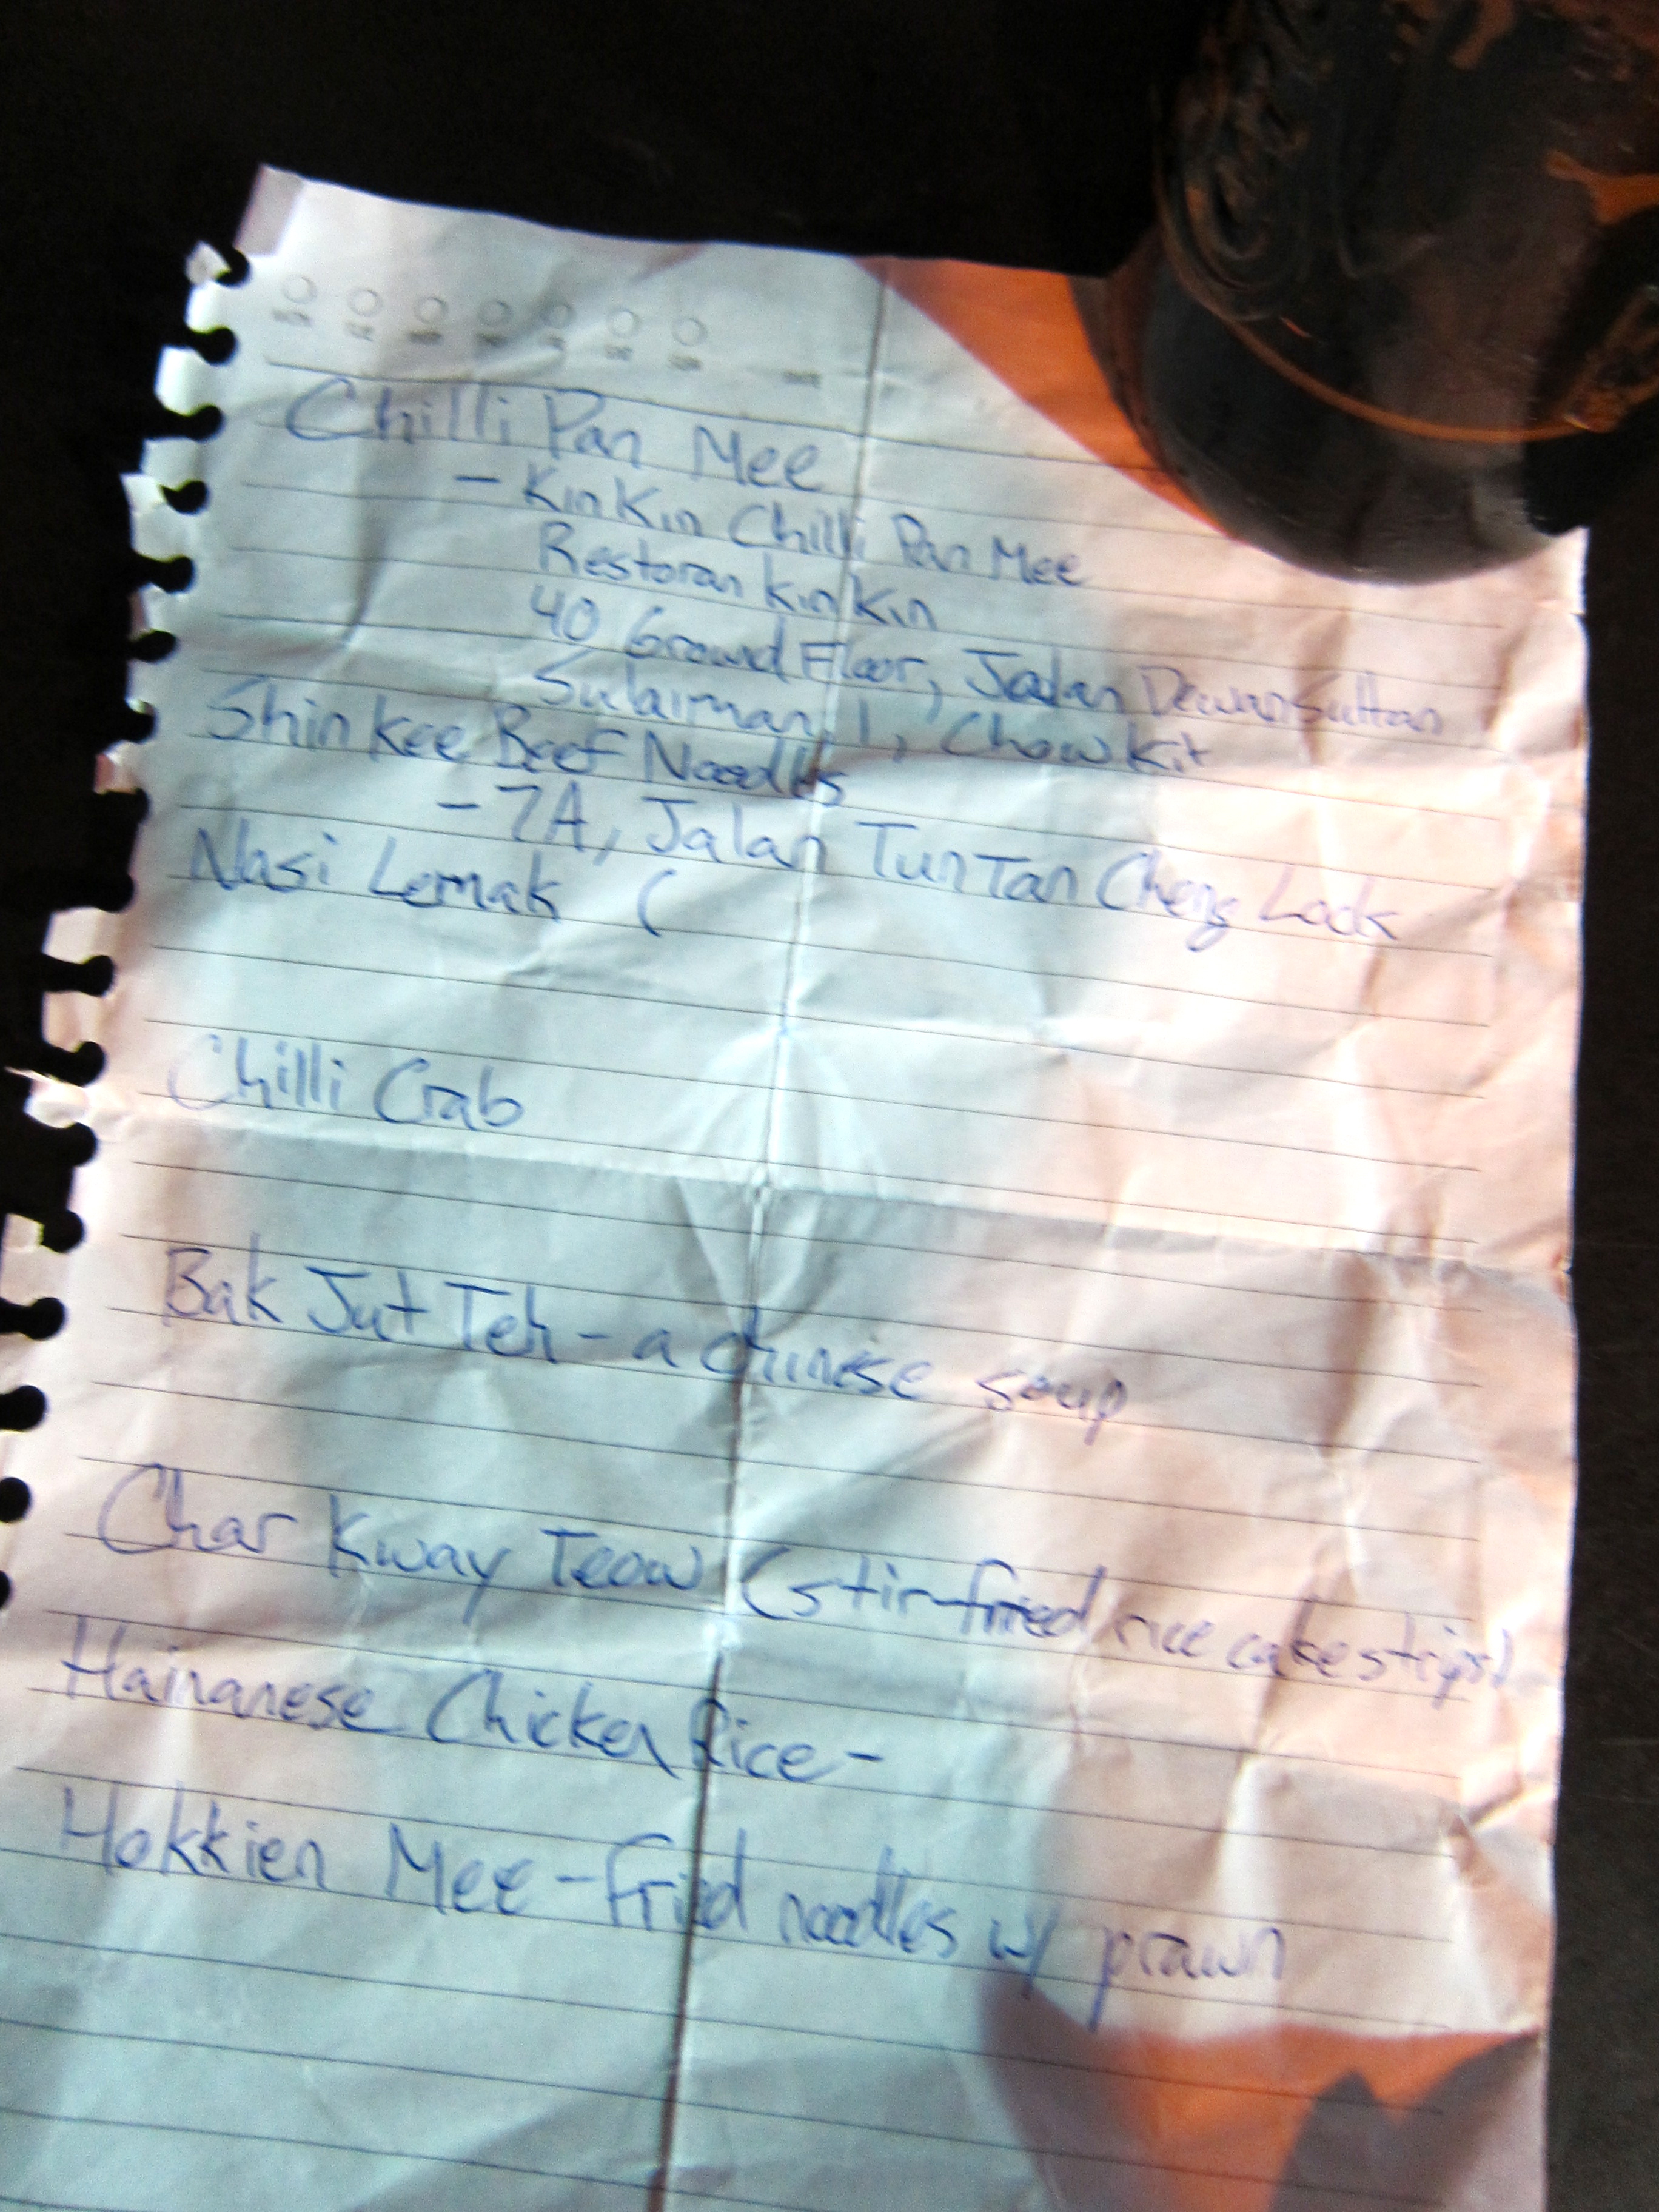 Chilli Pan Mee
- Kin Kin Chilli Pan Mee
Restoran Kin Kin
40 Ground Floor, Jalan Dewan Sultan
Sulaiman 1, Chow Kit
Shin Kee Beef Noodles
- 7A, Jalan Tun Tan Cheng Lock
Nasi Lemak (
Chilli Crab
Bak Jut Teh - a chinese soup
Char Kway Teow (stir-fried rice cake strips)
Hainanese Chicken Rice -
Hokkien Mee - fried noodles w/ prawn